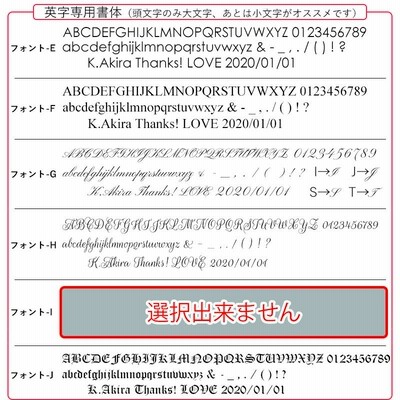 英字専用書体（頭文字のみ大文字、あとは小文字がオススメです）
ABCDEFGHIJKLMNOPQRSTUVWXYZ 0123456789
フォント-E abcdefghijklmnopqrstuvwxyz & - _ , . / ( ) ! ?
K.Akira Thanks! LOVE 2020/01/01
ABCDEFGHIJKLMNOPQRSTUVWXYZ 0123456789
フォント-F abcdefghijklmnopqrstuvwxyz & - _ , . / ( ) ! ?
K.Akira Thanks! LOVE 2020/01/01
ABCDEFGHIJKLMNOPQRSTUVWXYZ 0123456789
フォント-G abcdefghijklmnopqrstuvwxyz & - _ , . / ( ) ! ? I→I J→J
K.Akira Thanks! LOVE 2020/01/01 S→S T→T
ABCDEFGHIJKLMNOPQRSTUVWXYZ 0123456789
フォント-H abcdefghijklmnopqrstuvwxyz & - _ , . / ( ) ! ?
K.Akira Thanks! LOVE 2020/01/01
フォント-I 選択出来ません
ABCDEFGHIJKLMNOPQRSTUVWXYZ 0123456789
フォント-J abcdefghijklmnopqrstuvwxyz & - _ , . / ( ) ! ?
K.Akira Thanks! LOVE 2020/01/01